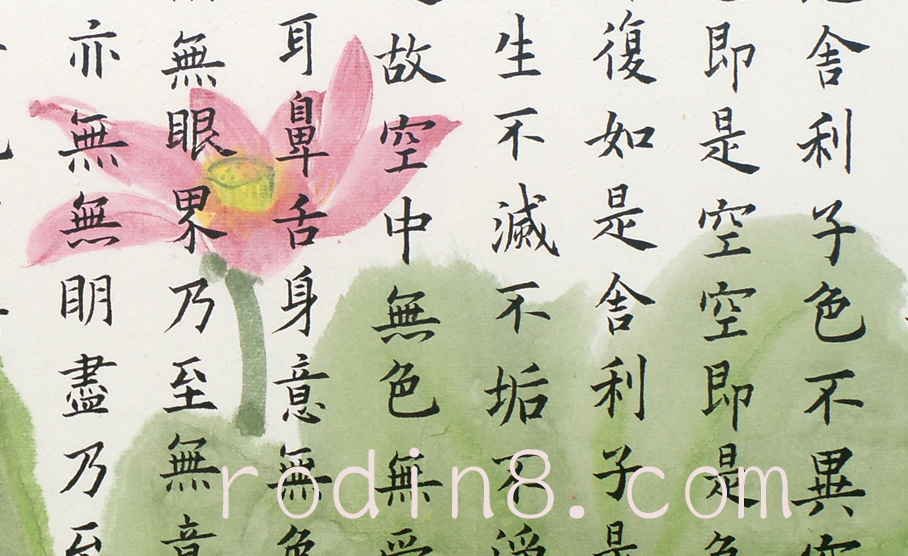 舍利子色不異空
即是空空即是色
復如是舍利子是
生不滅不垢不淨
故空中無色無受
耳鼻舌身意無色
無眼界乃至無意
亦無無明盡乃至
rodin8.com